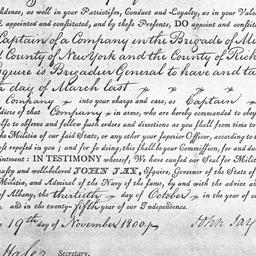 dence, as well in your Patriotism, Conduct and Loyalty, as in your Valour
appointed and constituted, and by these Presents, DO appoint and constitute
Captain of a Company in the Brigade of Mi
County of New York and the County of Rich
Squire is Brigadier General to have and ta
th day of March last
Company into your charge and care, as Captain
diers of that Company in arms, who are hereby commanded to obey
se to observe and follow such orders and directions as you shall from time to
the Militia of our said State, or any other your Superior Officer, according to
reposed in you; and for so doing, this shall be your Commission, for and du
ointment: IN TESTIMONY whereof, We have caused our Seal for Milita
usty and well-beloved JOHN JAY, Esquire, Governor of the State of
Militia, and Admiral of the Navy of the same, by and with the advice a
of Albany, the thirtieth day of October in the year of o
and in the twenty-fifth year of our Independence.
19th day of November 1800 John Jay
Secretary.